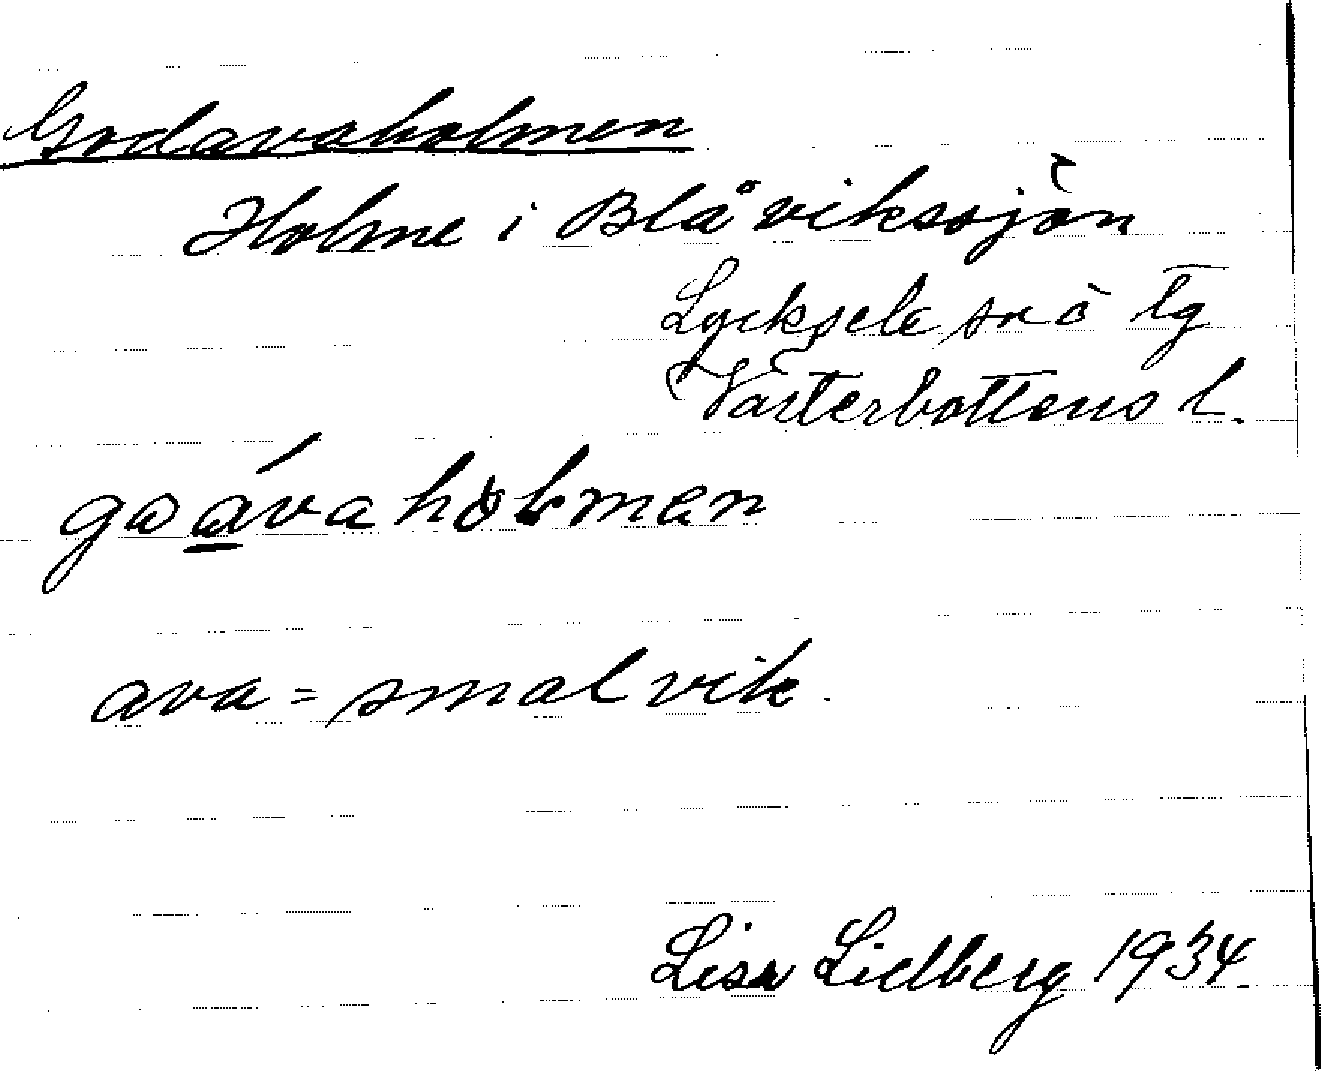 Godavaholmen
Holme i Blåviksjön
Lycksele sn o tg
Västerbottens l.
goávahólman
ava = smal vik.
Lisa Lidberg 1934.